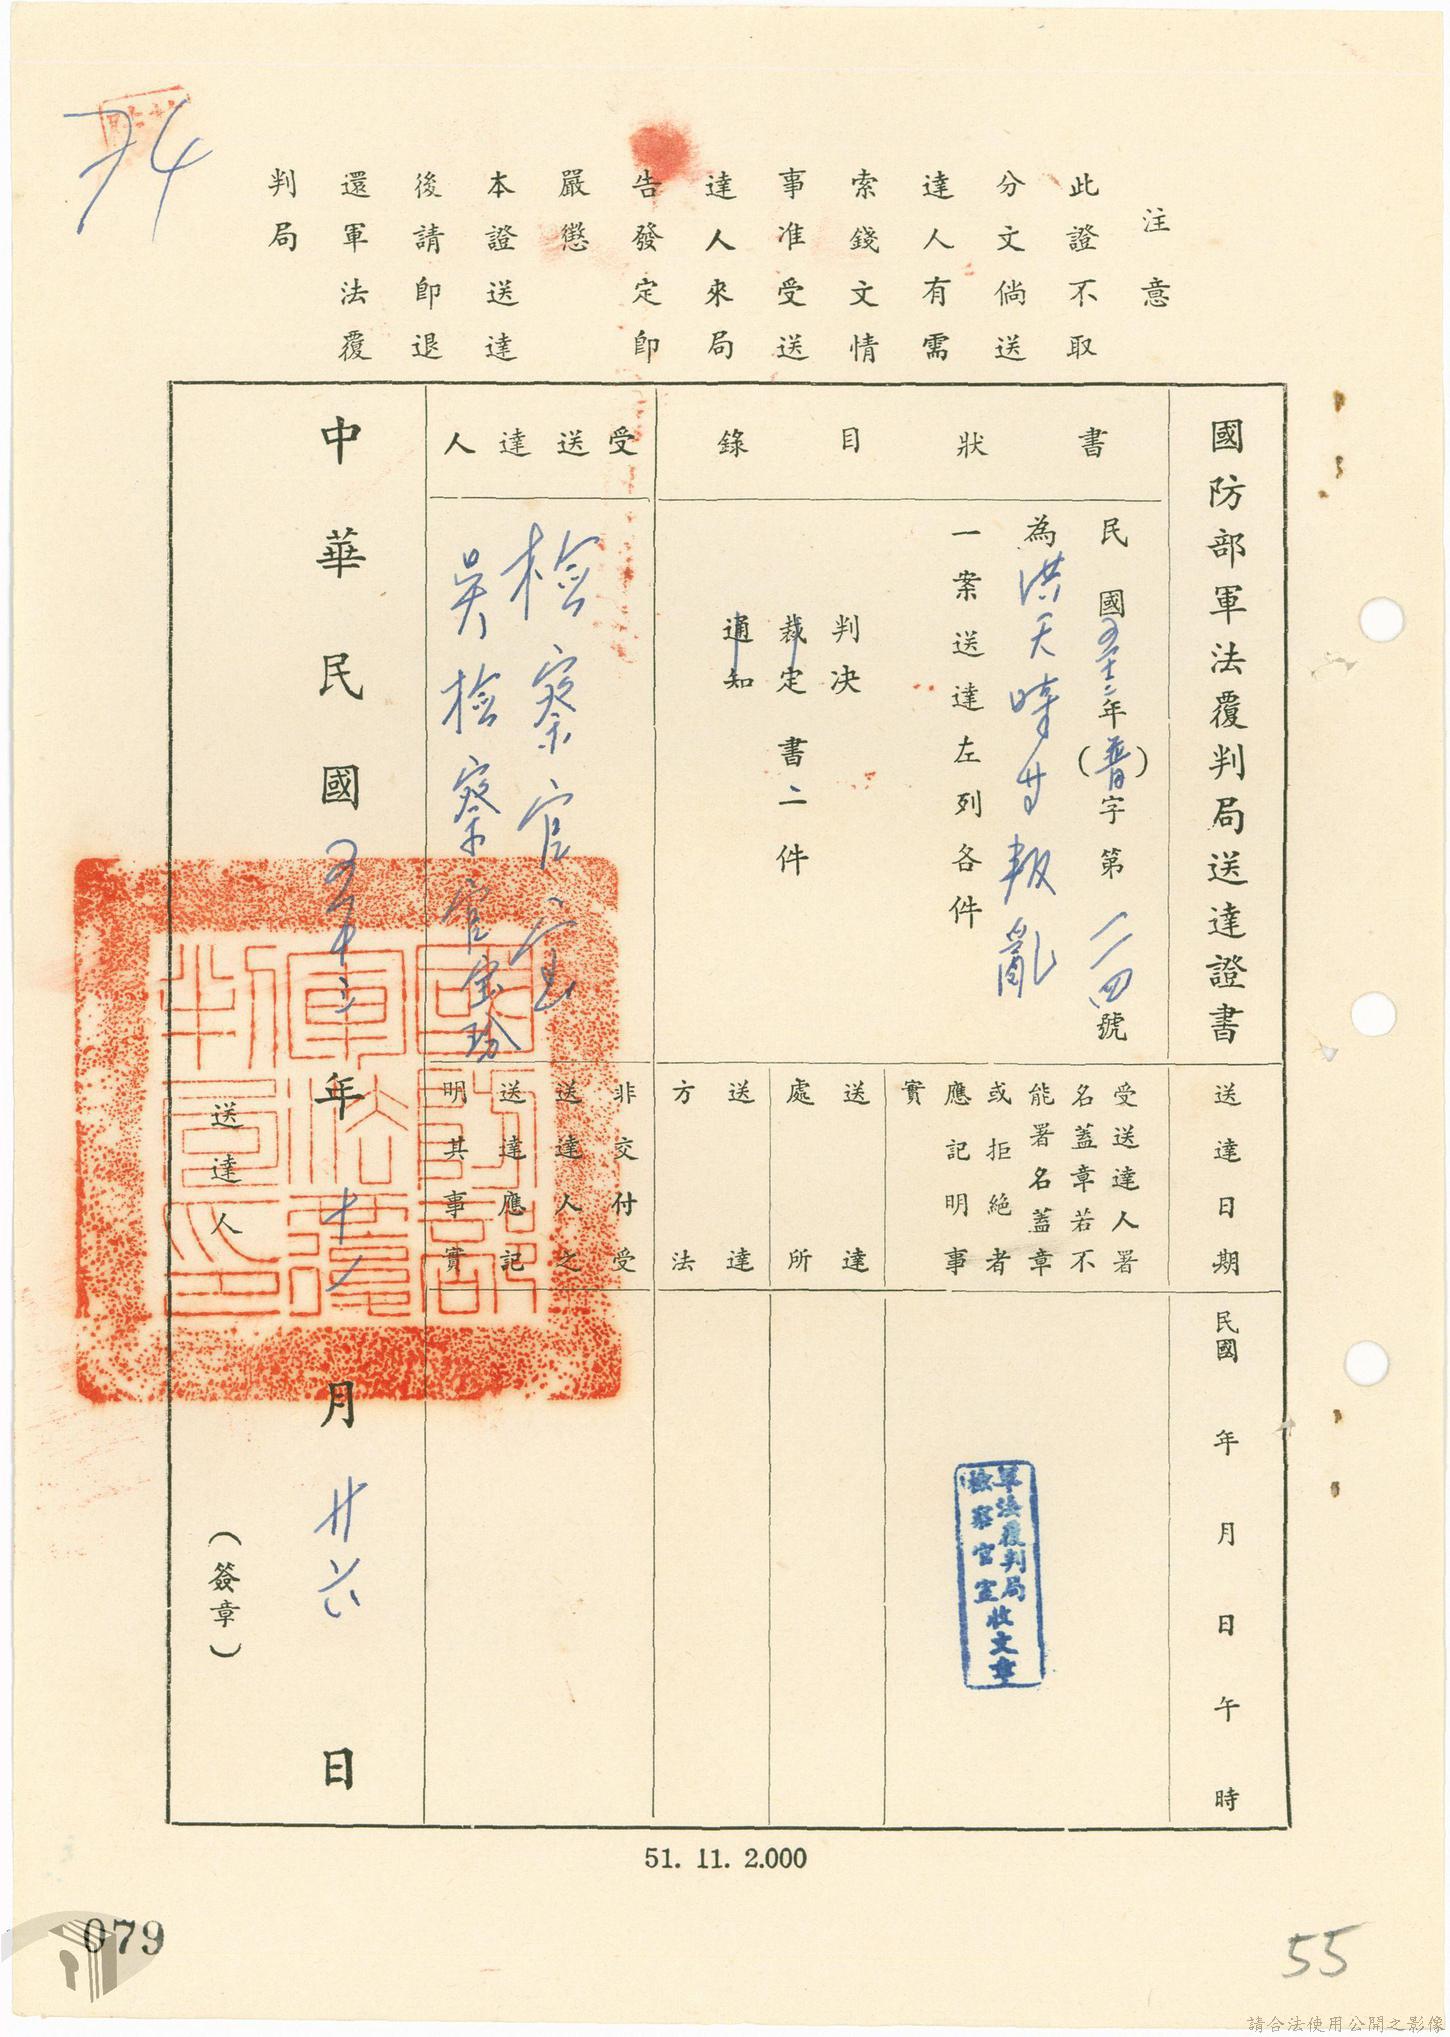 74
注意
此證不取
分文倘送
達人有需
索錢文情
事准受送
達人來局
告發定卽
嚴懲
本證送達
後請卽退
還軍法覆
判局
國防部軍法覆判局送達證書
書狀目錄
民國五十二年(普)字第一一四號
為洪天時等叛亂
一案送達左列各件
判決
裁定書二件
通知
受送達人
檢察官室
吳檢察官
送達日期
受送達人署
名蓋章若不
能署名蓋章
或拒絕者
應記明事
實
送達處所
送達方法
非交付受
送達人之
送達應記
明其事實
民國 年 月 日 午 時
軍法覆判局
檢察官室收文章
中華民國五十二年十一月廿六日
送達人 (簽章)
國防部軍法覆判局印
51. 11. 2.000
079
55
請合法使用公開之影像